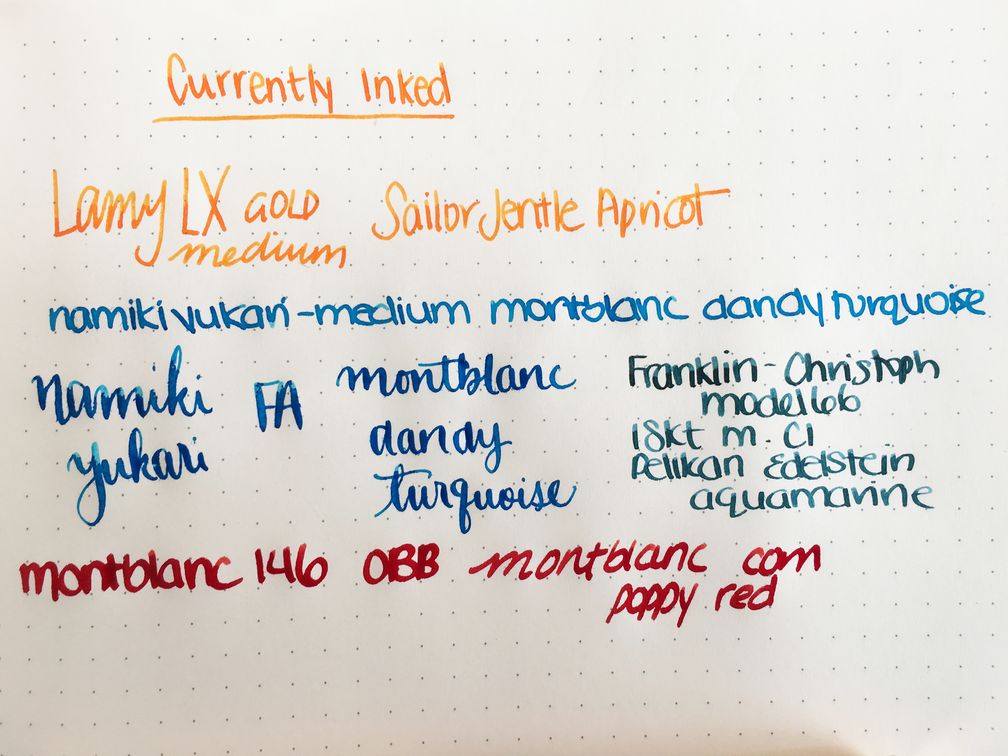 Currently Inked
Lamy LX GOLD Sailor Jentle Apricot
medium
namiki yukari-medium montblanc dandy turquoise
Namiki FA montblanc
yukari dandy
turquoise
Franklin-Christoph
model 66
18kt m. CI
Pelikan Edelstein
aquamarine
montblanc 146 OBB montblanc corn
poppy red